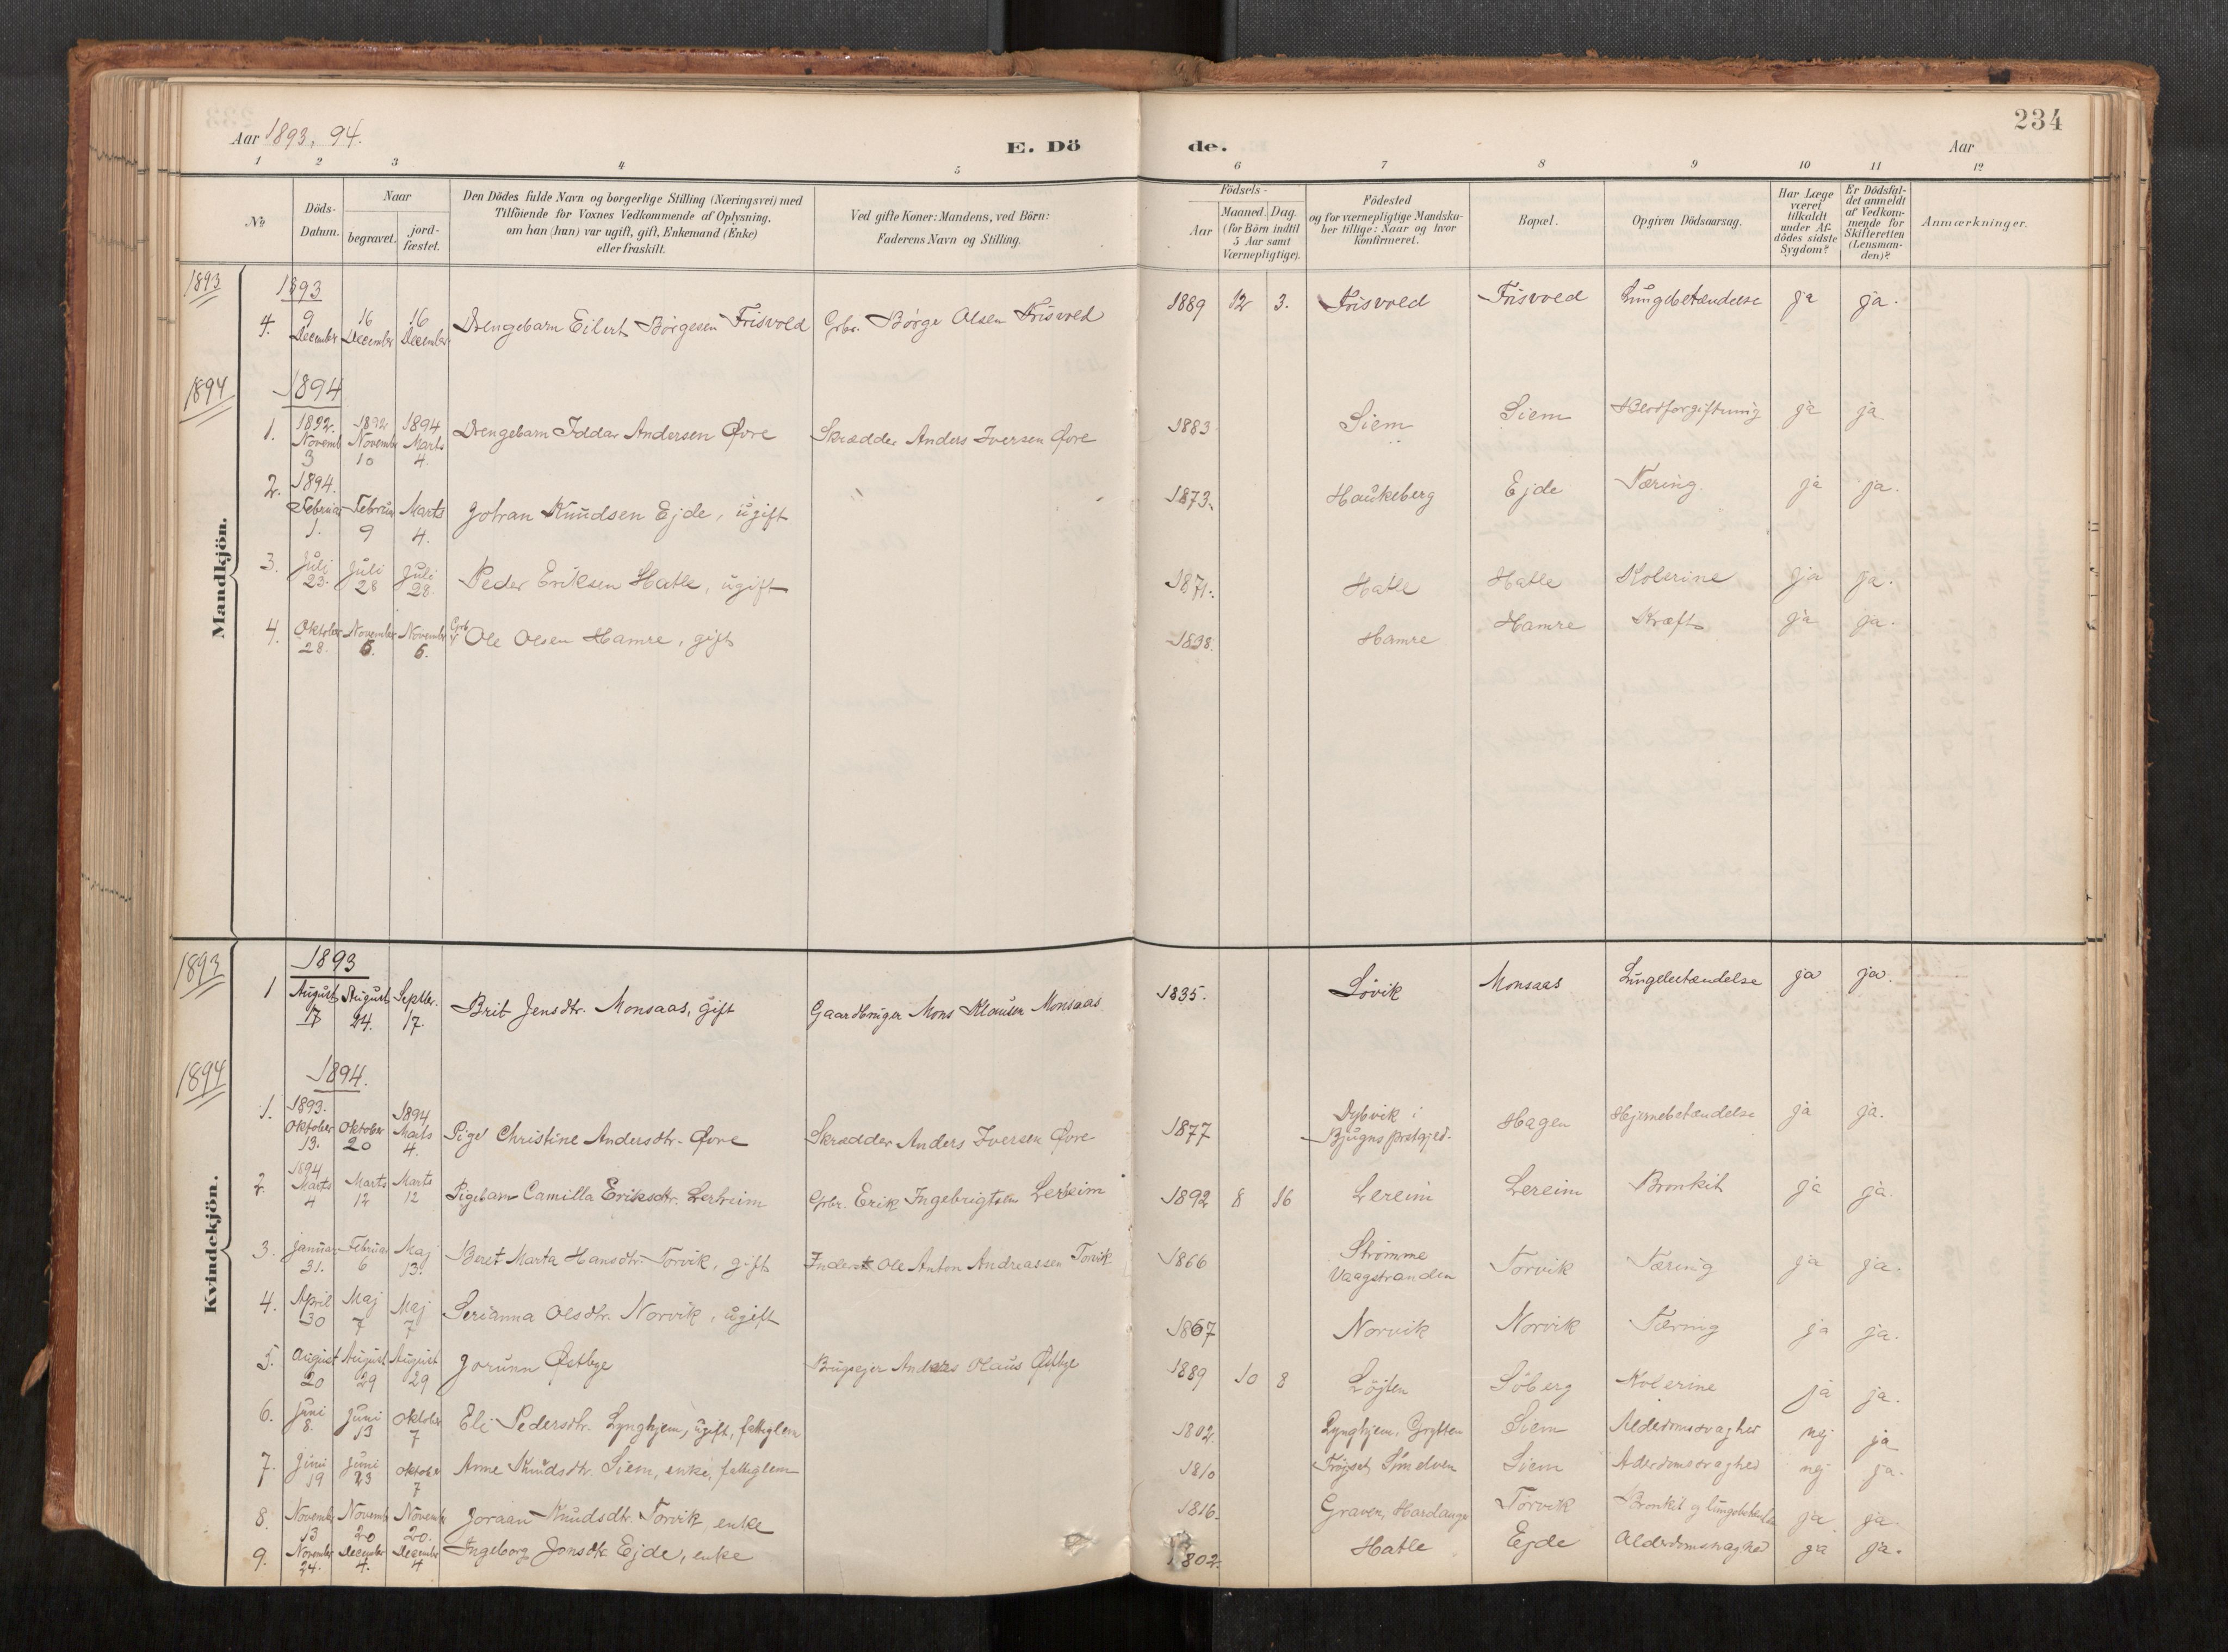 234
Aar 1893, 94.
E. Dö
de.
Aar
1 2 3 4 5 6 7 8 9 10 11 12
No
Döds-
Datum.
Naar
begravet.
jord-
fæstet.
Den Dödes fulde Navn og borgerlige Stilling (Næringsvei) med
Tilföiende for Voxnes Vedkommende af Oplysning,
om han (hun) var ugift, gift, Enkemand (Enke)
eller fraskilt.
Ved gifte Koner: Mandens, ved Börn:
Faderens Navn og Stilling.
Födsels-
Aar
Maaned. Dag.
(for Börn indtil
5 Aar samt
Værnepligtige).
Födested
og for værnepligtige Mandska-
ber tillige: Naar og hvor
konfirmeret.
Bopæl.
Opgiven Dödsaarsag.
Har Læge
været
tilkaldt
under Af-
dödes sidste
Sygdom?
Er Dödsfal-
det anmeldt
af Vedkom-
mende for
Skifteretten
(Lensman-
den)?
Anmærkninger.
Mandkjön.
1893
1893
4. 9 December 16 December 16 December Drengebarn Eilert Børgesen Frisvold Gbr. Børge Olsen Frisvold 1889 12 3. Frisvold Frisvold Lungebetændelse ja ja.
1894
1894
1. 1892. Novemb 3 1892 Novembr 10 1894 Marts 4. Drengebarn Iddar Andersen Øvre Skrædder Anders Iversen Øvre 1883 Siem Siem Blodforgiftning ja ja
2. 1894. Februar 1. Februar 9 Marts 4. Johan Knudsen Ejde, ugift 1873. Haukeberg Ejde Tæring. ja ja.
3. Juli 23. Juli 28 Juli 28. Peder Eriksen Hatle, ugift 1871. Hatle Hatle Kolerine ja ja.
4. Oktober 28. November 6. November 6. Grb Ole Olsen Hamre, gift 1838. Hamre Hamre Kræft ja ja.
Kvindekjön.
1893
1893
1 August 17 August 24. Septbr. 17. Brit Jensdtr. Monsaas, gift Gaardbruger Mons Klausen Monsaas 1835. Løvik Monsaas Lungebetændelse ja ja.
1894
1894.
1. 1893. Oktober 13. Oktober 20 1894 Marts 4. Pige Christine Andersdtr. Øvre Skrædder Anders Iversen Øvre 1877 Dybvik i Bjugns prstgjed. Hagen Hjernebetændelse ja ja.
2. 1894 Marts 4 Marts 12 Marts 12 Pigebarn Camilla Eriksdtr. Lerheim Gbr. Erik Ingebrigtsen Lereim 1892 8 16 Lereim Lereim Bronkit ja ja.
3. Januar 31. Februar 6 Maj 13. Beret Marta Hansdtr. Torvik, gift Inderst Ole Anton Andreassen Torvik 1866 Strømme Vaagstranden Torvik Tæring ja ja.
4. April 30 Maj 7 Maj 7 Serianna Olsdtr. Norvik, ugift 1867 Norvik Norvik Tæring ja ja.
5. August 20 August 29 August 29 Jorunn Østbye Andreas Klaus Østbye 1889 10 8 Løjten Søberg Kolerine ja ja.
6. Juni 8. Juni 13 Oktober 7 Eli Pedersdtr. Lynghjem, ugift, fattiglem 1802. Lynghjem, Grytten Siem Alderdomssvaghed nej ja
7. Juni 19 Juni 23 Oktober 7 Anne Knudsdtr. Siem, enke, fattiglem 1810 Siem Alderdomssvaghed nej ja.
8. Novemb 13 Novemb 20 Novemb 20. Joraan Knudsdtr. Torvik, enke 1816. Graven, Hardanger Torvik Bronkit og ja ja.
9. November 24. December 4. December 4 Ingeborg Jonsdtr. Ejde, enke 1802. Hatle Ejde Alderdomssvaghed ja ja.